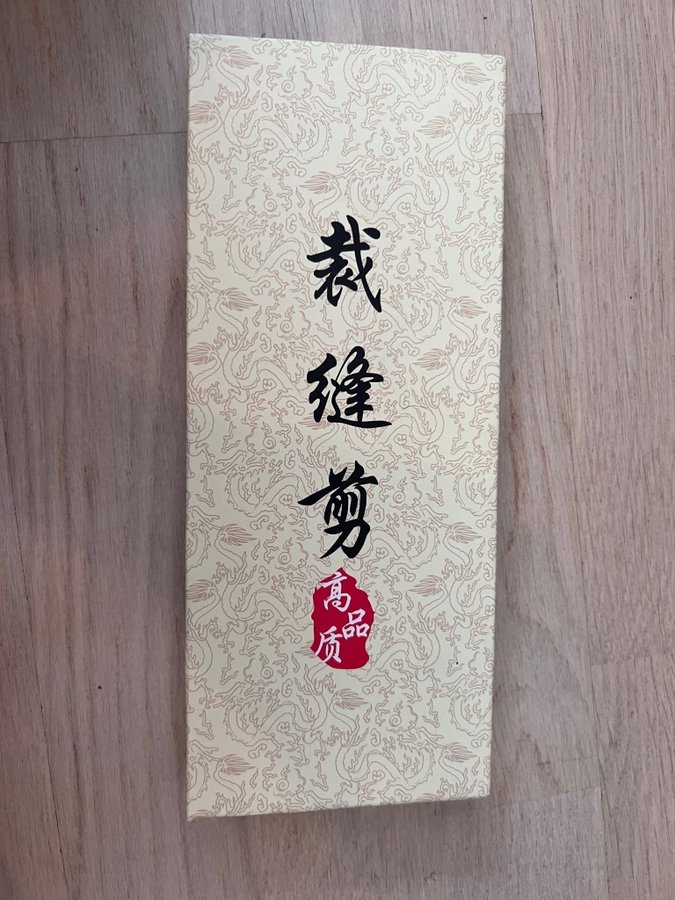 裁缝剪
高品质